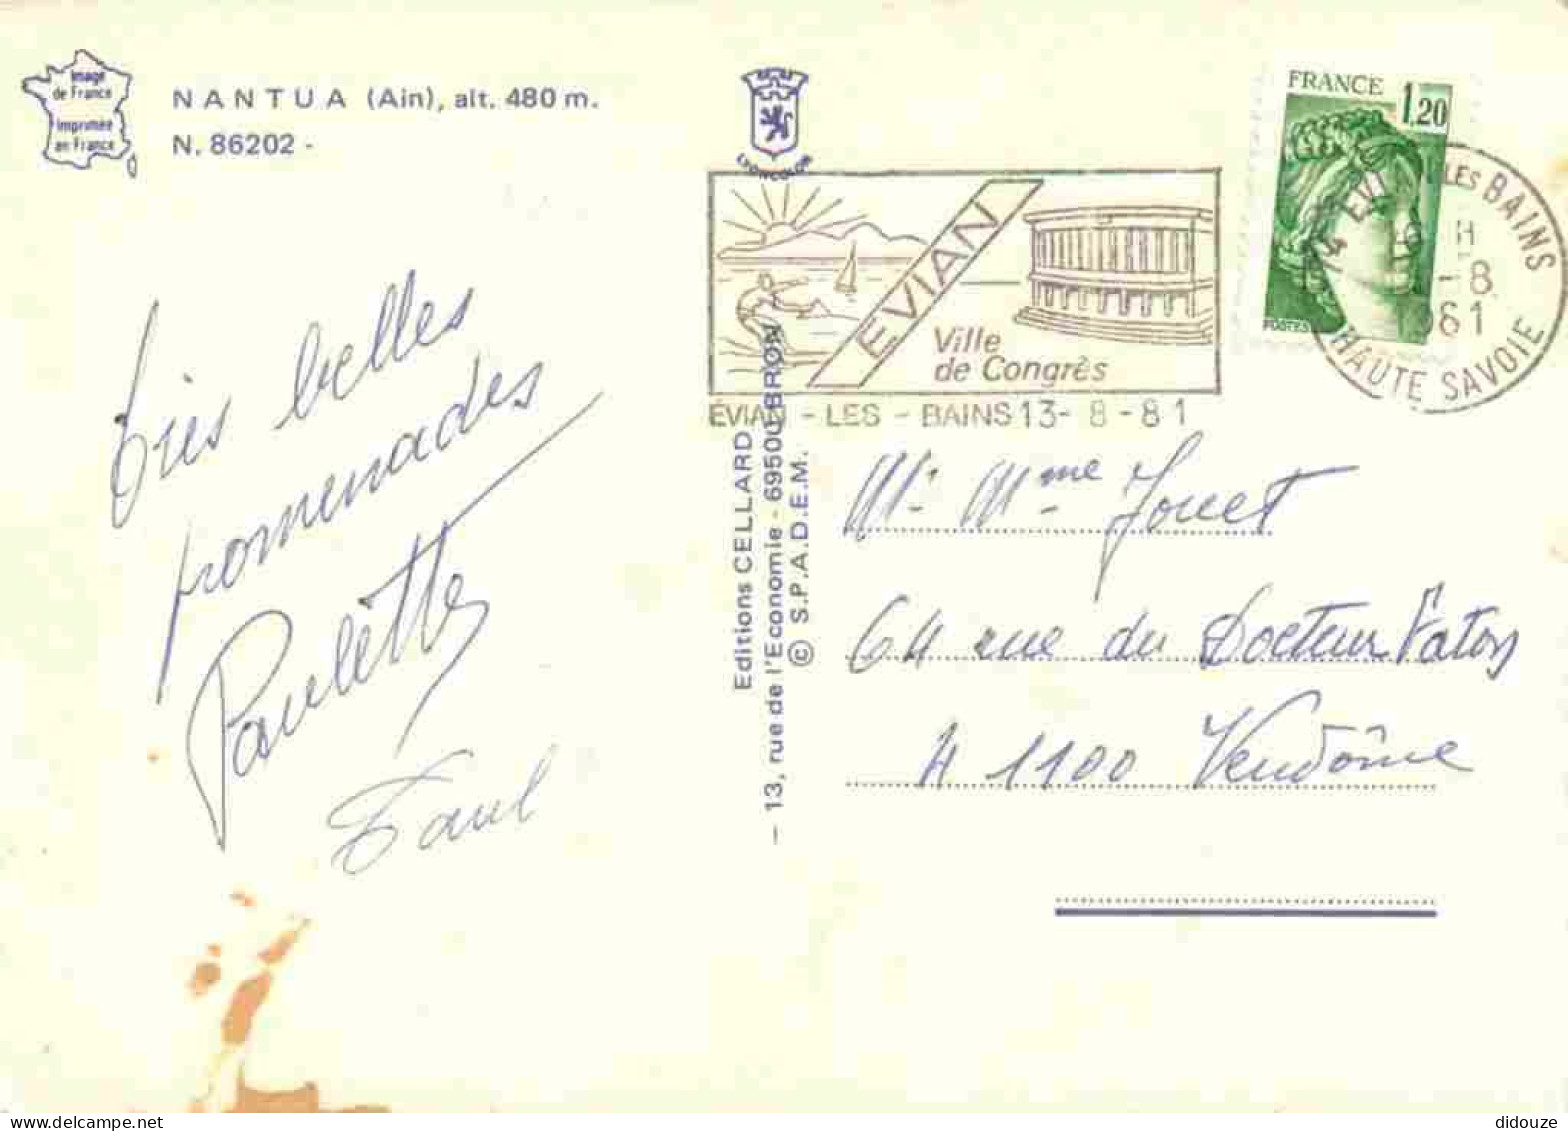 Image
de France
imprimée
en France
NANTUA (Ain), alt. 480 m.
N. 86202 -
LYONCOLOR
FRANCE
1,20
POSTES
74 EVIAN LES BAINS
HAUTE SAVOIE
EVIAN
Ville
de Congrès
ÉVIAN - LES - BAINS 13 - 8 - 81
très belles
promenades
Paulette
Paul
Editions CELLARD
— 13, rue de l'Economie - 69500 BRON
© S.P.A.D.E.M.
Mr Mme Jouet
64 rue du Docteur Faton
41100 Vendôme
didouze